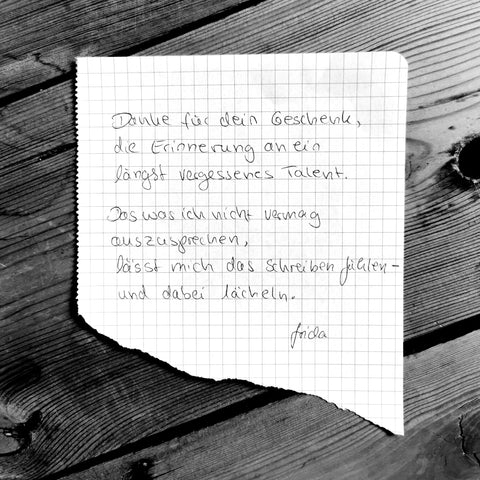 Danke für dein Geschenk,
die Erinnerung an ein
längst vergessenes Talent.
Das was ich nicht vermag
auszusprechen,
lässt mich das schreiben fühlen -
und dabei lächeln.
frida